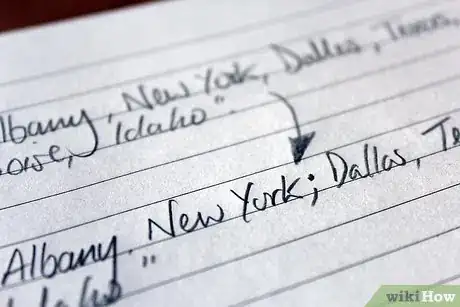 lbany, New York, Dallas, Texas,
oise, Idaho".
Albany, New York; Dallas, Te
Idaho "
wikiHow